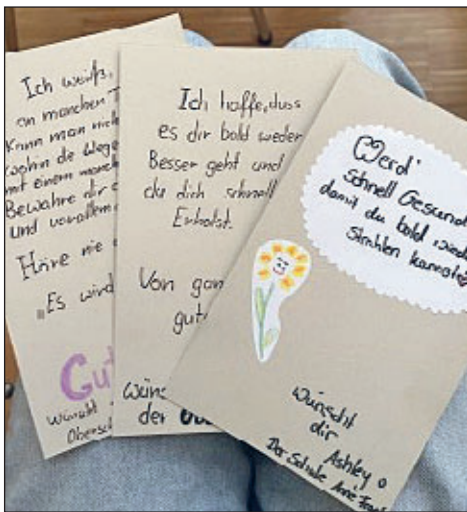 Ich weiß,
an manchen T
Kann man nich
wohin die Wege
mit einem manch
Bewahre dir
und vor allem
Höre nie
„Es wird
Gut
wünscht
Obersch
Ich hoffe, dass
es dir bald wieder
Besser geht und
du dich schnell
Erholst.
Von gan
gut
wüns
der
Werd'
schnell Gesund
damit du bald wied
Strahlen kannst
wünscht
dir
Ashley
Der Schule Anne Frank